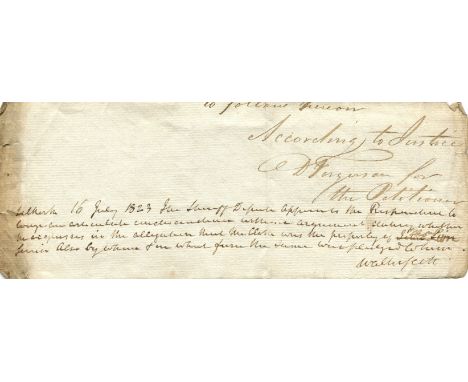 to follow thereon
According to Justice
D Ferguson for
the Petitioner
Selkirk 16 July 1823 The Sheriff Depute appoints the Respondent to
lodge an articulate condescendence without argument stating whether
he acquiesces in the allegation that the Cloth was the property of
Also by whom & in what form the same was pledged to him
Walter Scott